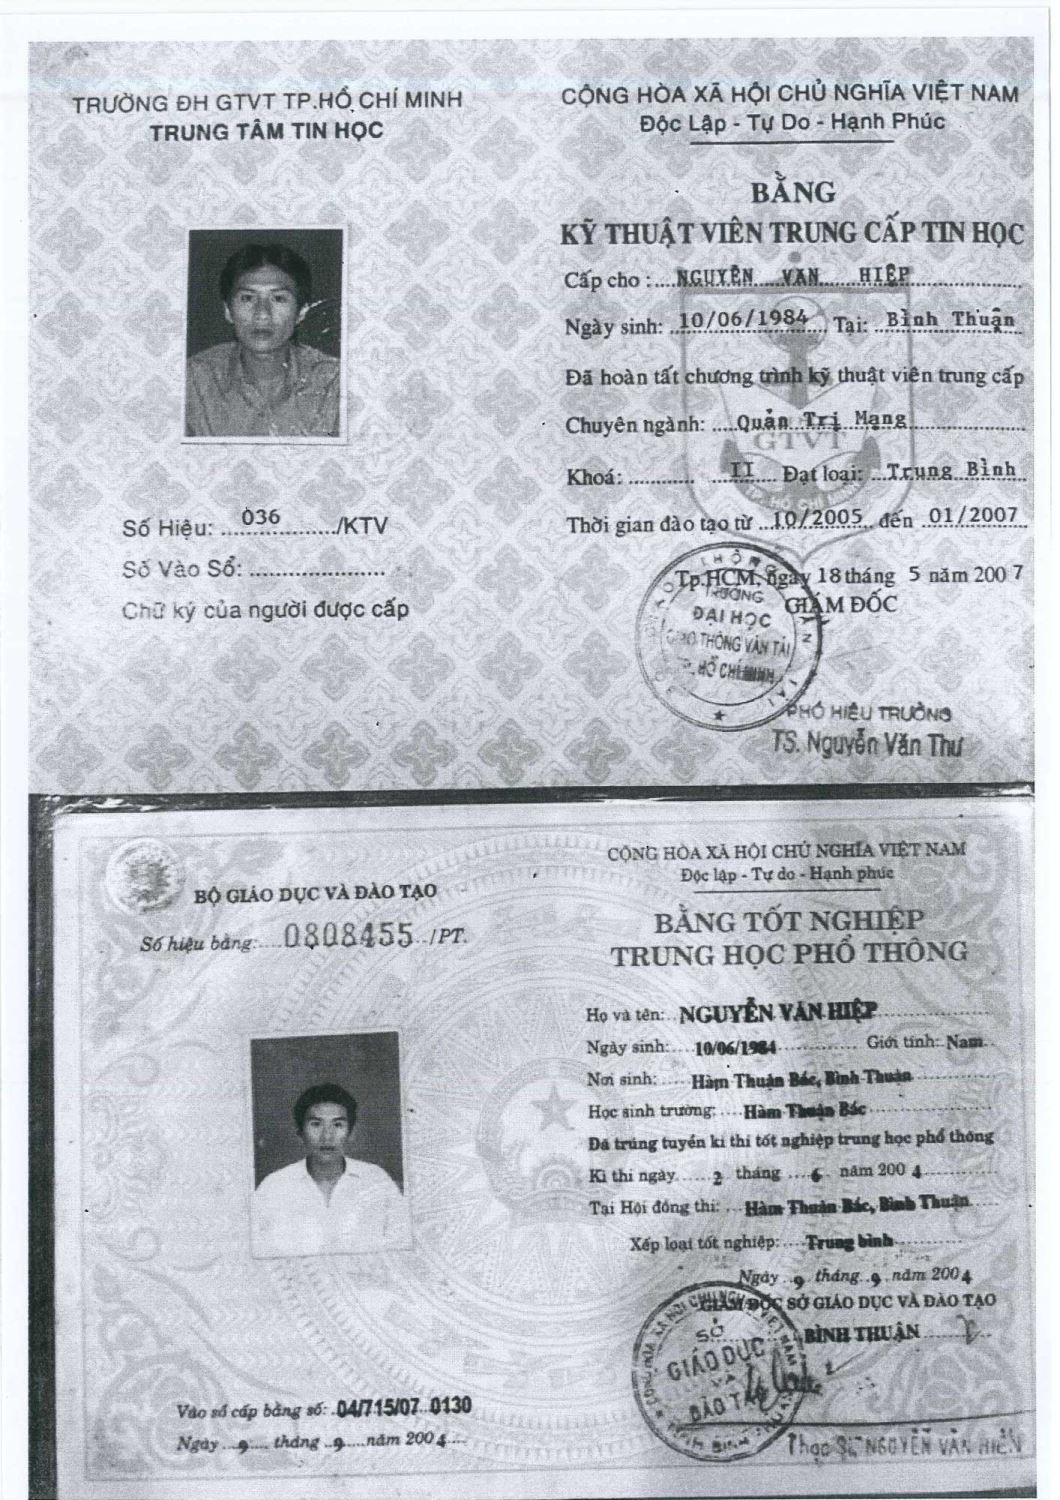 TRƯỜNG ĐH GTVT TP.HỒ CHÍ MINH
TRUNG TÂM TIN HỌC
Số Hiệu: ...036........./KTV
Số Vào Sổ: ....................
Chữ ký của người được cấp
CỘNG HÒA XÃ HỘI CHỦ NGHĨA VIỆT NAM
Độc Lập - Tự Do - Hạnh Phúc
BẰNG
KỸ THUẬT VIÊN TRUNG CẤP TIN HỌC
Cấp cho : ....NGUYỄN VĂN HIỆP
Ngày sinh: 10/06/1984 Tại: Bình Thuận
Đã hoàn tất chương trình kỹ thuật viên trung cấp
Chuyên ngành: ....Quản Trị Mạng
GTVT
Khoá: ........... II Đạt loại: Trung Bình
Thời gian đào tạo từ 10/2005 đến 01/2007
Tp.HCM, ngày 18 tháng 5 năm 2007
GIÁM ĐỐC
TRƯỜNG
ĐẠI HỌC
GIAO THÔNG VẬN TẢI
TP. HỒ CHÍ MINH
PHÓ HIỆU TRƯỞNG
TS. Nguyễn Văn Thư
BỘ GIÁO DỤC VÀ ĐÀO TẠO
Số hiệu bằng:....0808455../PT.
CỘNG HÒA XÃ HỘI CHỦ NGHĨA VIỆT NAM
Độc lập - Tự do - Hạnh phúc
BẰNG TỐT NGHIỆP
TRUNG HỌC PHỔ THÔNG
Họ và tên: NGUYỄN VĂN HIỆP
Ngày sinh: 10/06/1984 Giới tính: Nam
Nơi sinh: Hàm Thuận Bắc, Bình Thuận
Học sinh trường: Hàm Thuận Bắc
Đã trúng tuyển kì thi tốt nghiệp trung học phổ thông
Kì thi ngày 2 tháng 6 năm 2004
Tại Hội đồng thi: Hàm Thuận Bắc, Bình Thuận
Xếp loại tốt nghiệp: Trung bình
Ngày 9 tháng 9 năm 2004
GIÁM ĐỐC SỞ GIÁO DỤC VÀ ĐÀO TẠO
BÌNH THUẬN
SỞ
GIÁO DỤC
VÀ
ĐÀO TẠO
Thạc Sĩ NGUYỄN VĂN HIẾN
Vào sổ cấp bằng số: 04/715/07 0130
Ngày 9 tháng 9 năm 2004